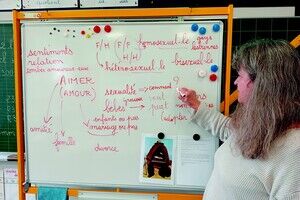 sentiments
relation
tomber amoureux·euse
F/H F/F homosexuel·le gays
lesbiennes
H/H
hétérosexuel·le bisexuel·le
AIMER
(AMOUR)
sexualité → comment ?
bébés
enfants ou pas
mariage ou pas
adopter
amitié
famille
divorce